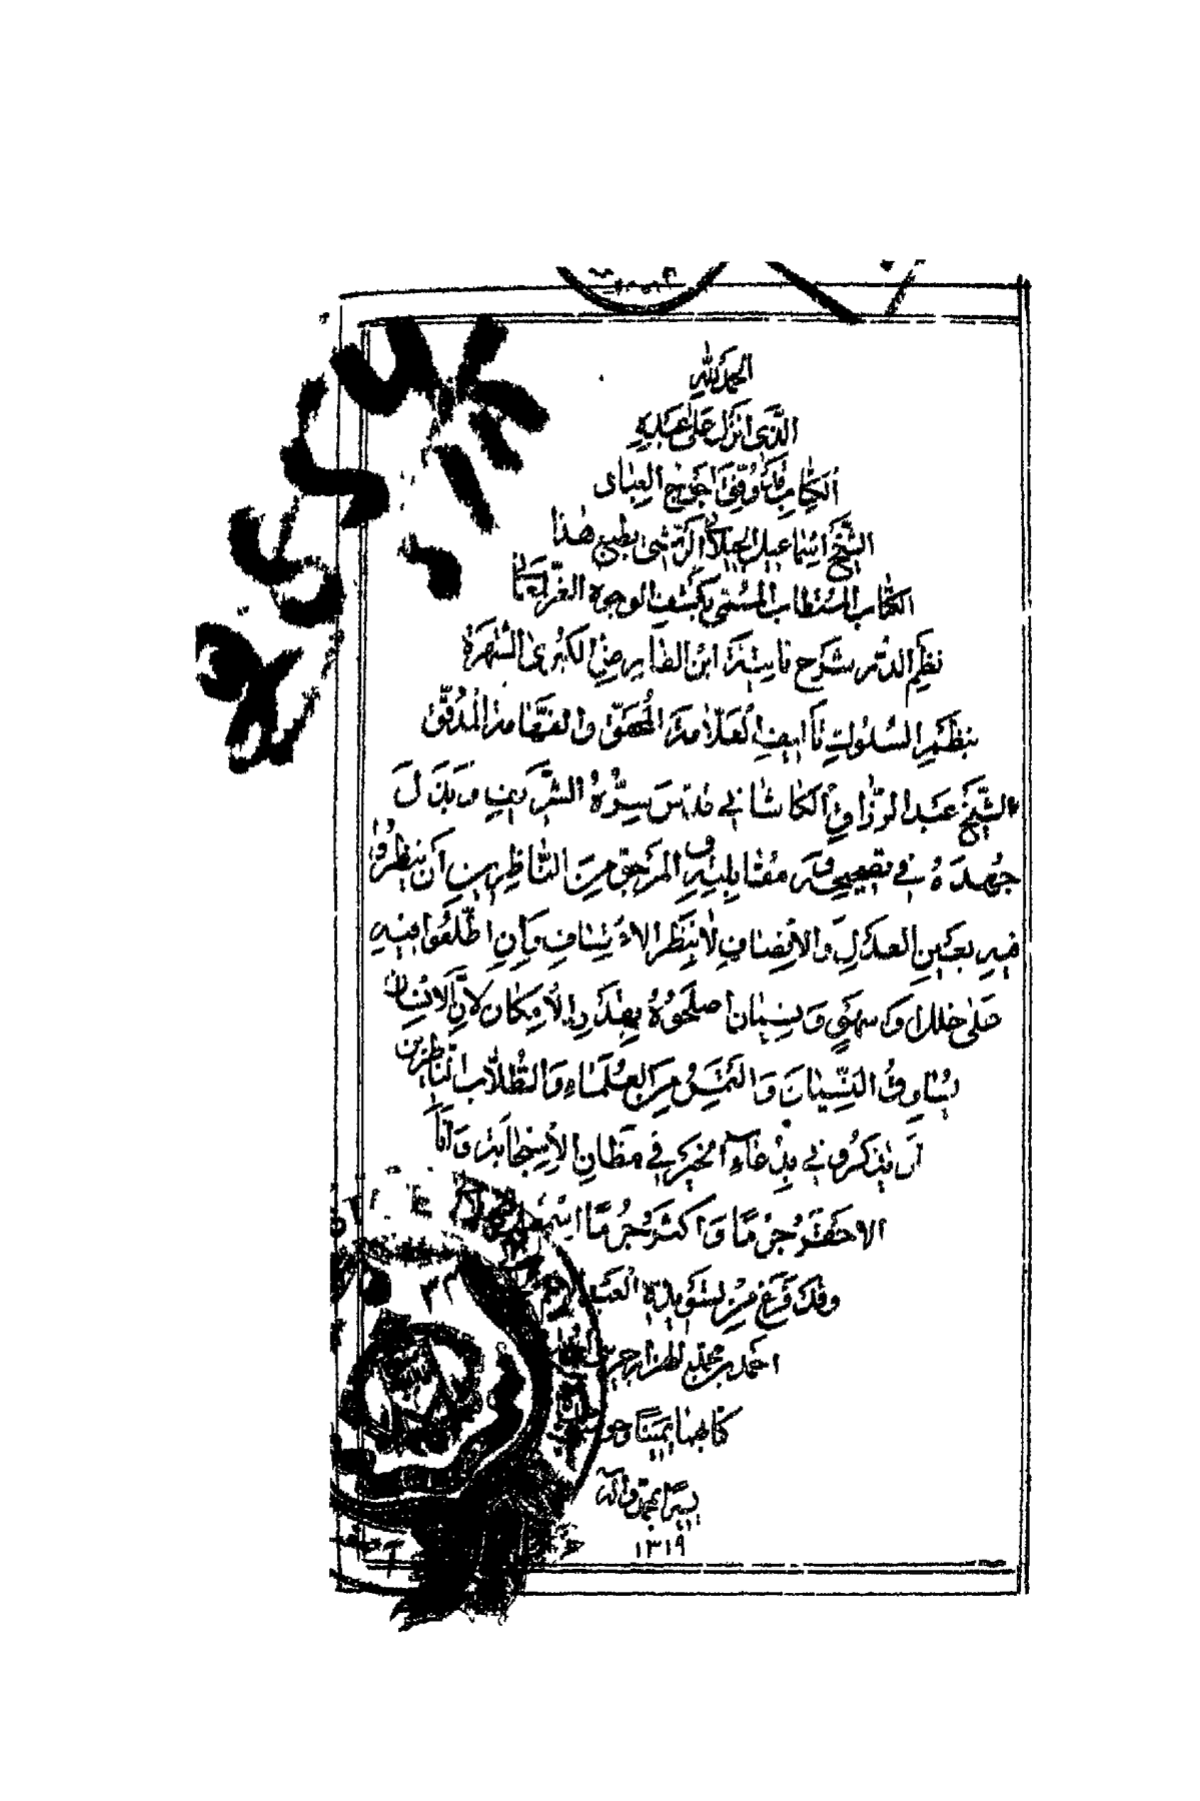 الحمد لله
الذي انزل على عبده
الكتاب قد وفق احوج العباد
الشيخ اسماعيل الجيلاني الرشتي بطبع هذا
الكتاب المستطاب المسمى بكشف الوجوه الغر لمعاني
نظم الدر شرح تائية ابن الفارض الكبرى الشهرة
بنظم السلوك تأليف العلامة المحقق والفهامة المدقق
الشيخ عبد الرزاق الكاشاني قدس سره الشريف وبذل
جهده في تصحيحه ومقابلته والمرجو من الناظرين ان ينظروا
فيه بعين العدل والانصاف لا بنظر الاعتساف وان اطلعوا فيه
على خلل وسهو ونسيان اصلحوه بقدر الامكان لان الانسان
يساوق النسيان والتمس من العلماء والطلاب الناظرين
ان يذكروني بدعاء الخير في مظان الاستجابة وانا
الاحقر جرما واكثر جرما
وقد فرغ من تسويده العبد
احمد بن محمد
كتابها يمينا
يسيرا بمحمد وآله
١٣١٩